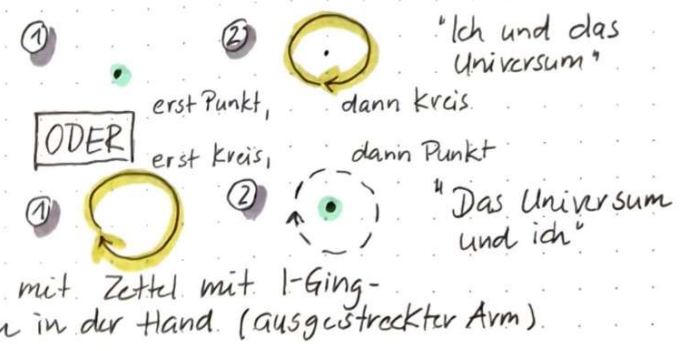 ① ② "Ich und das
Universum"
erst Punkt, dann Kreis.
ODER
erst Kreis, dann Punkt
① ② "Das Universum
und ich"
mit Zettel mit I-Ging-
in der Hand. (ausgestreckter Arm).